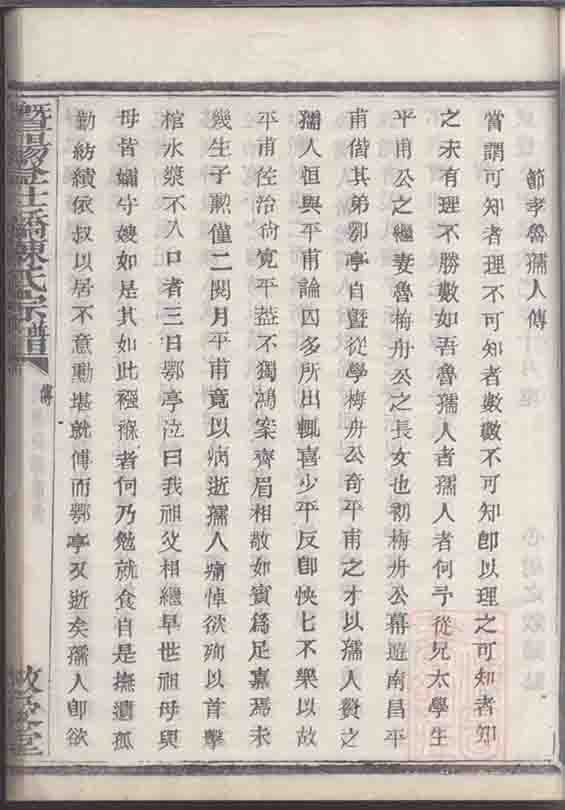 節孝魯孺人傳
嘗謂可知者理不可知者數數不可知卽以理之可知者知
之未有理不勝數如吾魯孺人者孺人者何予從兄太學生
平甫公之繼妻魯梅舟公之長女也初梅舟公幕遊南昌平
甫偕其弟鄂亭自暨從學梅舟公奇平甫之才以孺人贅之
孺人恒與平甫論囚多所出輒喜少平反卽怏匕不樂以故
平甫佐治尙寬平葢不獨鴻案齊眉相敬如賓爲足嘉焉未
幾生子勲僅二閱月平甫竟以病逝孺人痛悼欲殉以首擊
棺水漿不入口者三日鄂亭泣曰我祖父相繼早世祖母與
母皆孀守嫂如是其如此襁褓者何乃勉就食自是撫遺孤
勤紡績依叔以居不意勳堪就傅而鄂亭又逝矣孺人卽欲
暨陽
社橋陳氏宗譜
傳
敘堂